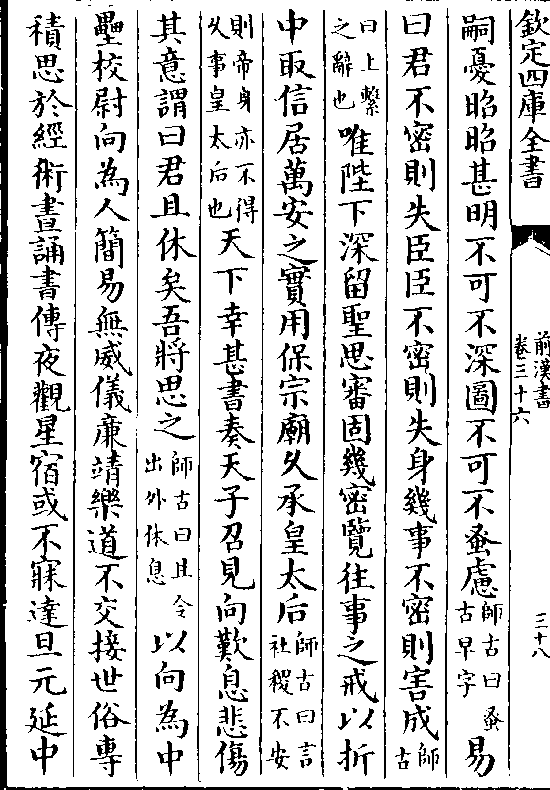 欽定四庫全書
前漢書
卷三十六
三十八
嗣憂昭昭甚明不可不深圖不可不蚤慮師古曰蚤古早字易
曰君不密則失臣臣不密則失身幾事不密則害成師古
曰上繫之辭也唯陛下深留聖思審固幾密覽往事之戒以折
中取信居萬安之實用保宗廟久承皇太后師古曰言社稷不安
則帝身亦不得久事皇太后也天下幸甚書奏天子召見向歎息悲傷
其意謂曰君且休矣吾將思之師古曰且令出外休息以向為中
壘校尉向為人簡易無威儀廉靖樂道不交接世俗專
積思於經術晝誦書傳夜觀星宿或不寐達旦元延中